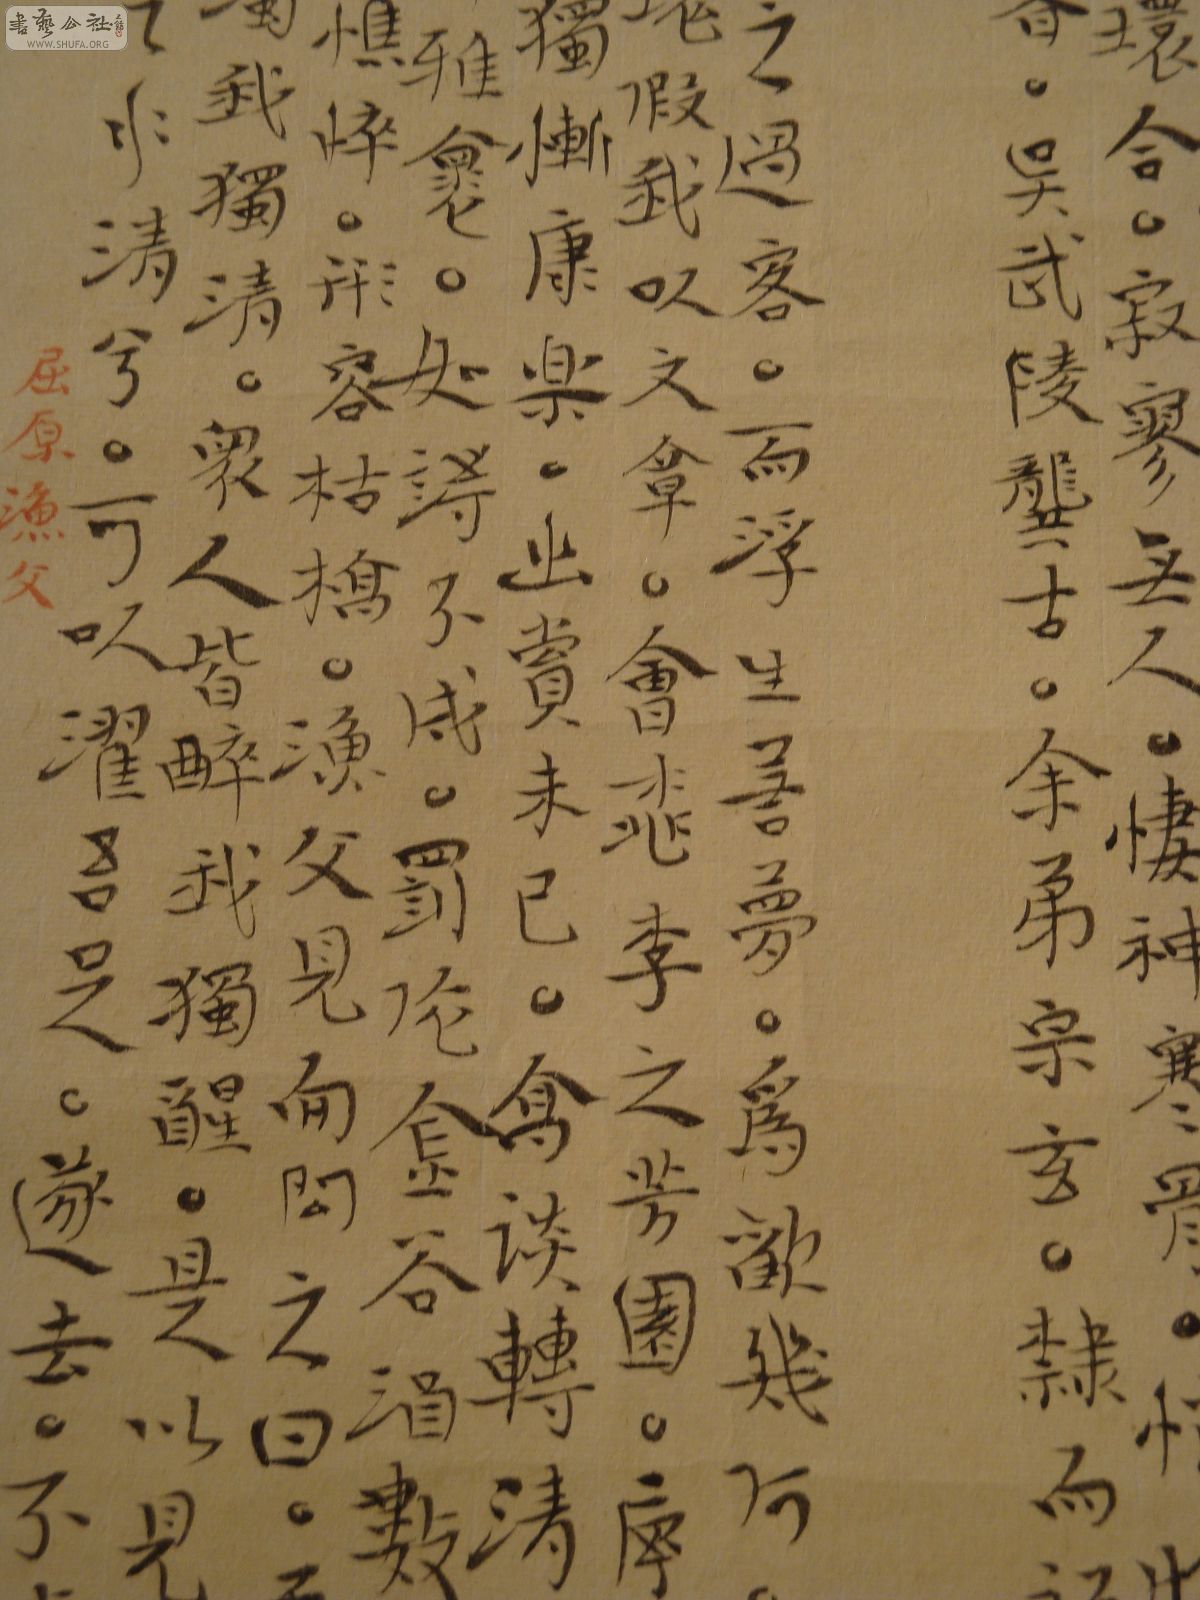 環合。寂寥无人。悽神寒骨。悄
吳武陵龔古。余弟宗玄。隸而
之過客。而浮生若夢。爲歡幾何。
塊假我以文章。會桃李之芳園。序
獨慚康樂。幽賞未已。高談轉清
雅懷。如詩不成。罰依金谷酒數
憔悴。形容枯槁。漁父見而問之曰。
我獨清。衆人皆醉我獨醒。是以見
水清兮。可以濯吾足。遂去。不
屈原漁父
書藝公社
WWW.SHUFA.ORG